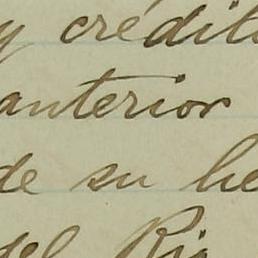 y crédit
anterior
de su he
del Rio